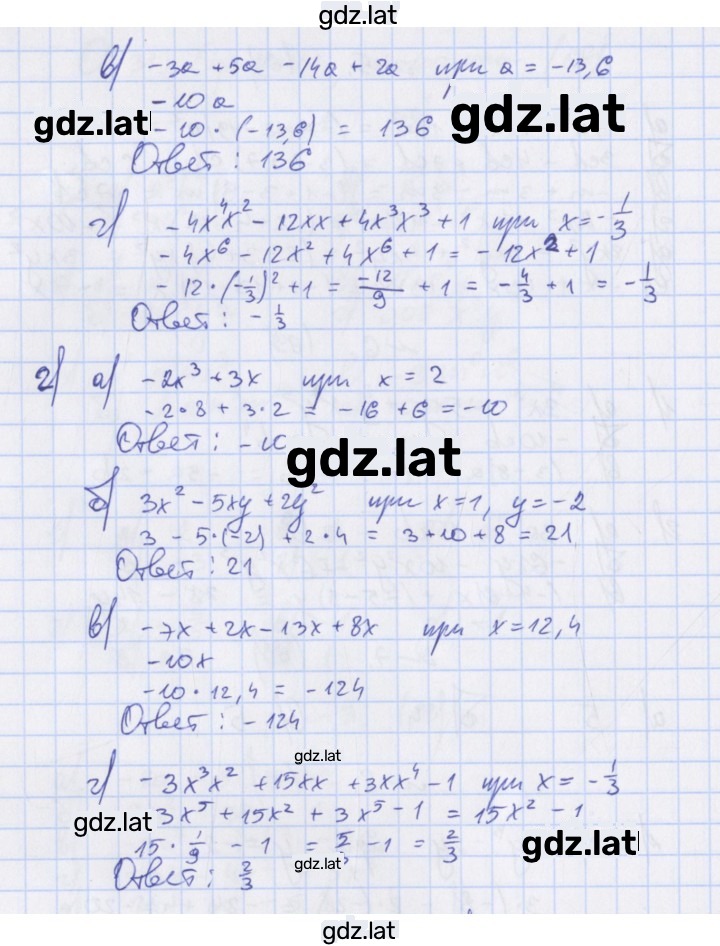 gdz.lat
в) -3a + 5a - 14a + 2a при a = -13,6
-10a
gdz.lat
gdz.lat
-10 · (-13,6) = 136
Ответ: 136
г) -4x⁴x² - 12xx + 4x³x³ + 1 при x = -1/3
-4x⁶ - 12x² + 4x⁶ + 1 = -12x² + 1
-12 · (-1/3)² + 1 = -12/9 + 1 = -4/3 + 1 = -1/3
Ответ: -1/3
2) а) -2x³ + 3x при x = 2
-2·8 + 3·2 = -16 + 6 = -10
Ответ: -10
gdz.lat
б) 3x² - 5xy + 2y² при x = 1, y = -2
3 - 5·(-2) + 2·4 = 3 + 10 + 8 = 21
Ответ: 21
в) -7x + 2x - 13x + 8x при x = 12,4
-10x
-10 · 12,4 = -124
Ответ: -124
gdz.lat
г) -3x³x² + 15xx + 3xx⁴ - 1 при x = -1/3
3x⁵ + 15x² + 3x⁵ - 1 = 15x² - 1
gdz.lat
gdz.lat
15 · 1/9 - 1 = 5/3 - 1 = 2/3
gdz.lat
Ответ: 2/3
gdz.lat